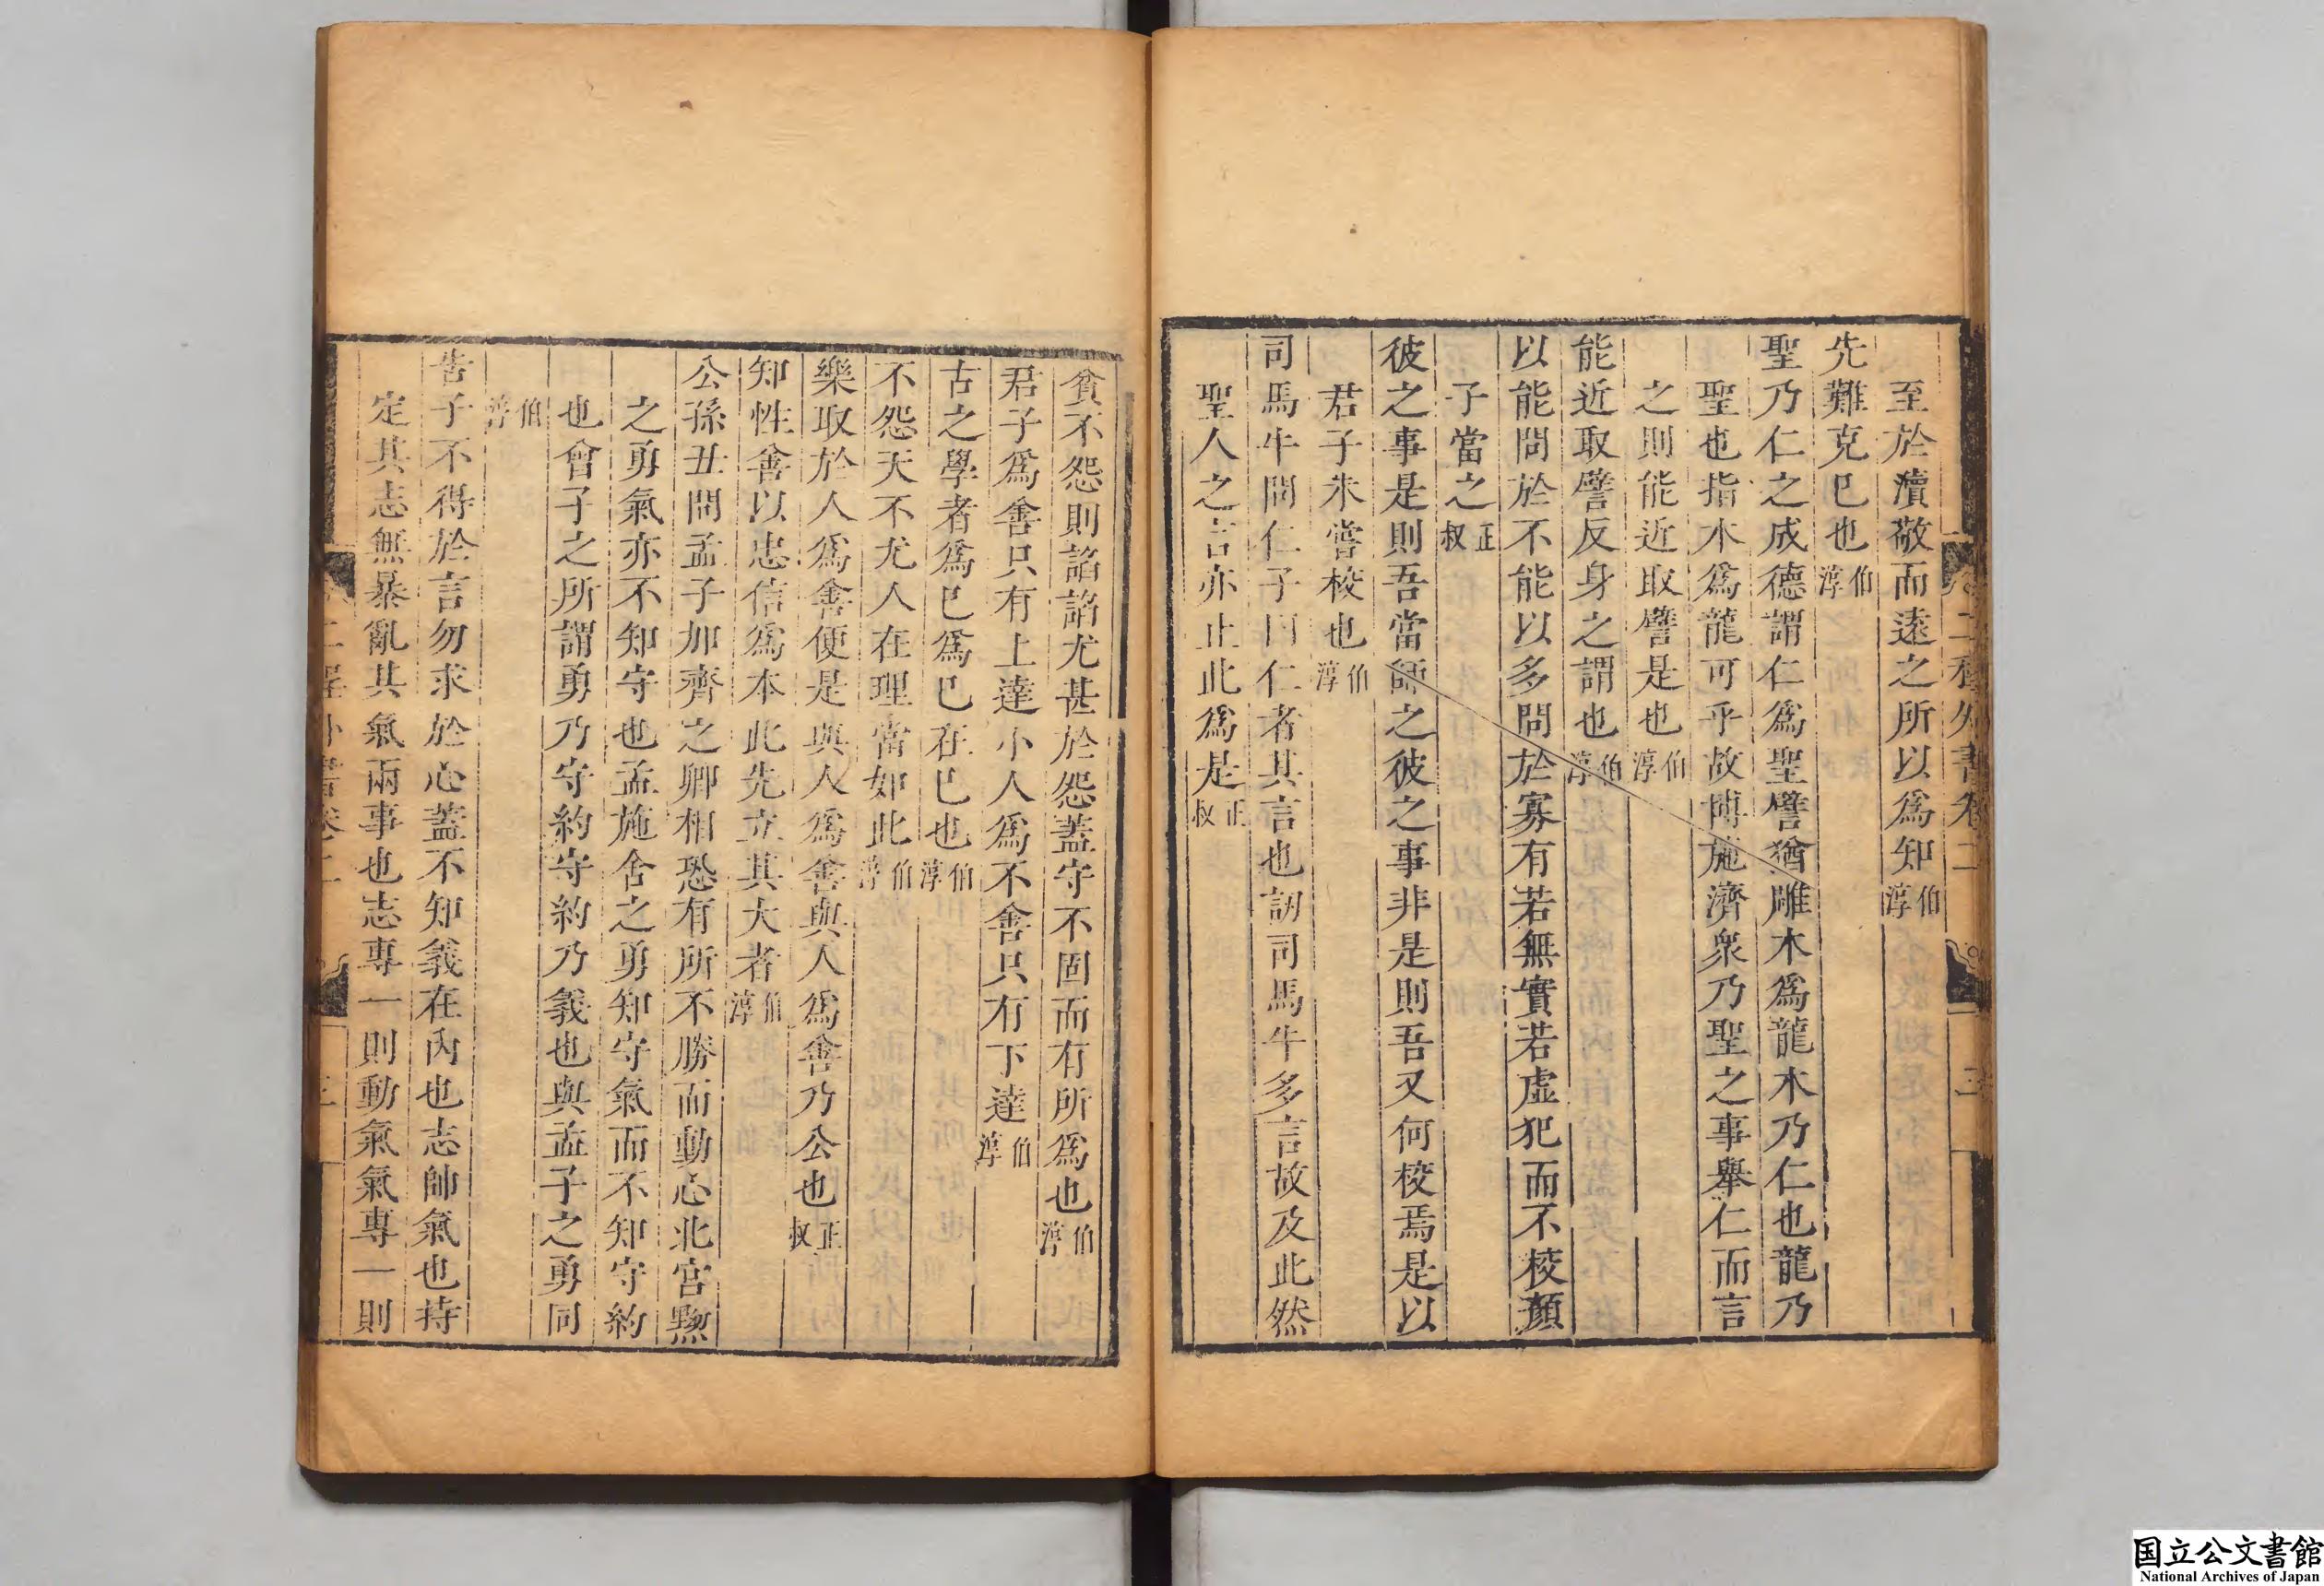 至於瀆敬而遠之所以爲知伯淳
先難克巳也伯淳
聖乃仁之成德謂仁爲聖譬猶雕木爲龍木乃仁也龍乃
聖也指木爲龍可乎故博施濟衆乃聖之事舉仁而言
之則能近取譬是也伯淳
能近取譬反身之謂也伯淳
以能問於不能以多問於寡有若無實若虛犯而不校顏
子當之正叔
彼之事是則吾當師之彼之事非是則吾又何校焉是以
君子未嘗校也伯淳
司馬牛問仁子曰仁者其言也訒司馬牛多言故及此然
聖人之言亦止此爲是正叔
貧不怨則諂諂尤甚於怨蓋守不固而有所爲也伯淳
君子爲善只有上達小人爲不善只有下達伯淳
古之學者爲巳爲巳在巳也伯淳
不怨天不尤人在理當如此伯淳
樂取於人爲善便是與人爲善與人爲善乃公也正叔
知性善以忠信爲本此先立其大者伯淳
公孫丑問孟子加齊之卿相恐有所不勝而動心北宮黝
之勇氣亦不知守也孟施舍之勇知守氣而不知守約
也曾子之所謂勇乃守約守約乃義也與孟子之勇同
伯淳
告子不得於言勿求於心蓋不知義在內也志帥氣也持
定其志無暴亂其氣兩事也志專一則動氣氣專一則
二程外書卷二
三
国立公文書館
National Archives of Japan